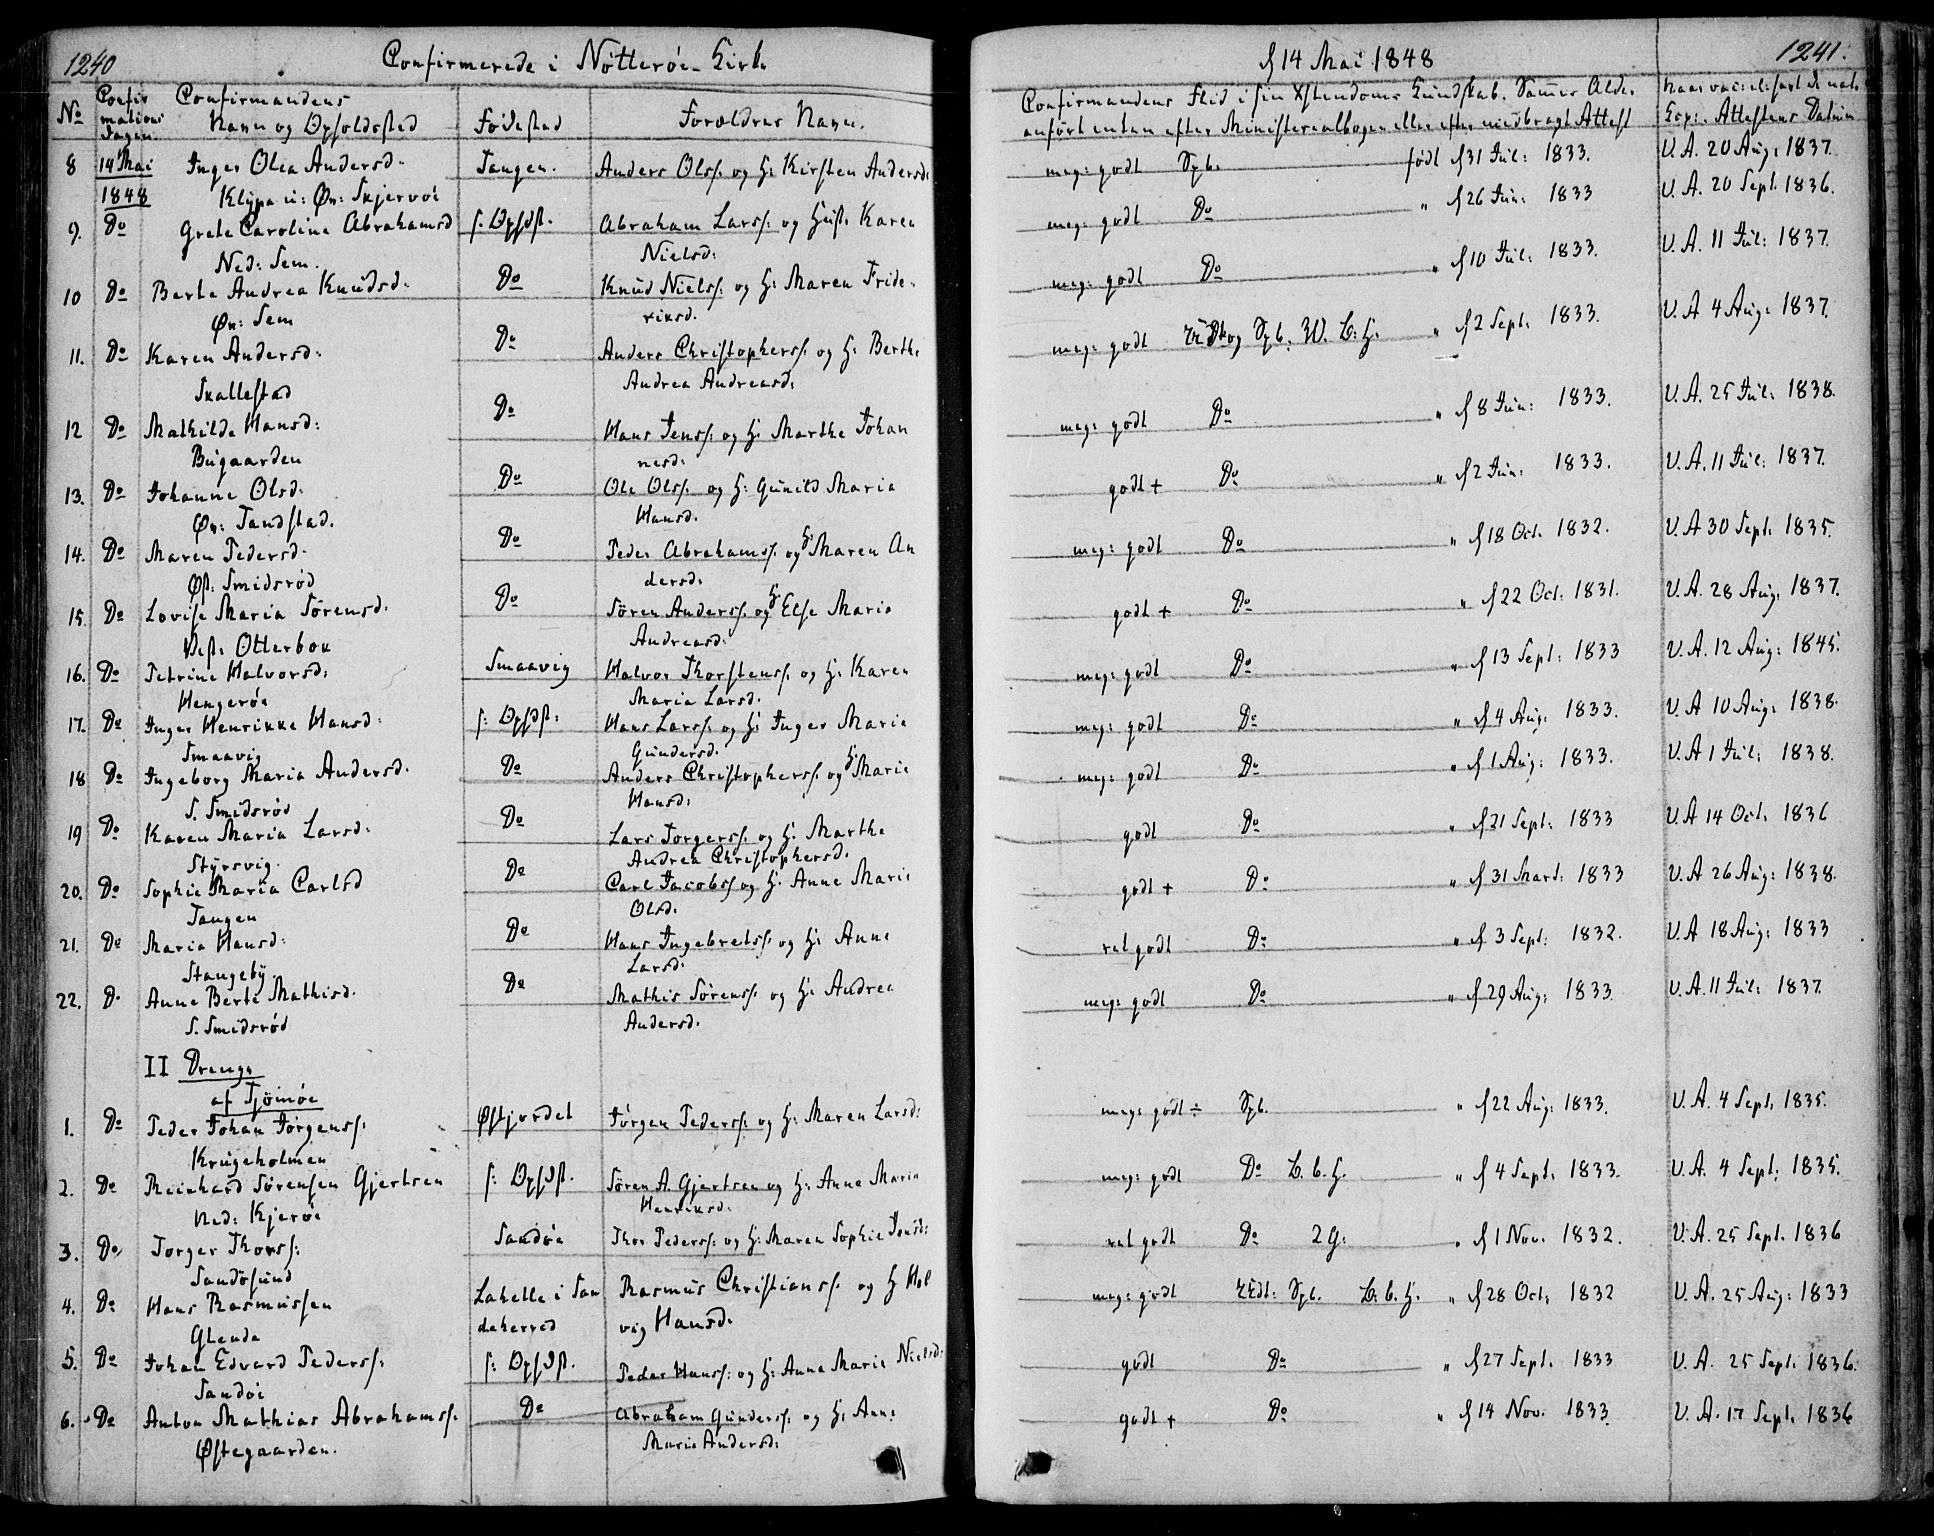 1240
Confirmerede i Nötteröe Kirke
№
Confir
mations
Dagen.
Confirmandens
Navn og Opholdssted
Födested
Forældres Navn.
8
14 Mai
1848
Inger Olea Andersd:
Klÿpa u: Øv: Skjervöe
Tangen.
Anders Olss: og H: Kirsten Andersd:
9.
Do
Grete Caroline Abrahamsd
Ned: Sem.
s: Ophdst.
Abraham Larss: og Hust. Karen
Nielsd:
10
Do
Berte Andrea Knudsd:
Øv: Sem
Do
Knud Nielss: og H: Maren Fride-
riksd.
11.
Do
Karen Andersd:
Skallestad
Do
Anders Christophers: og H: Berthe
Andrea Andreasd:
12
Do
Mathilde Hansd:
Bugaarden
Do
Hans Jenss: og H: Marthe Johan
nesd:
13.
Do
Johanne Olsd:
Øv: Tandstad.
Do
Ole Olss. og H: Gunild Maria
Hansd.
14.
Do
Maren Pedersd:
Øst: Smidsröd
Do
Peder Abrahams. og H: Maren An
dersd:
15.
Do
Lovise Maria Sörensd:
Vest: Otterbek
Do
Sören Anderss. og H: Else Maria
Andreasd:
16.
Do
Petrine Halvorsd:
Hengeröe
Smaavig
Halvor Thorstenss. og H: Karen
Maria Larsd.
17.
Do
Inger Henrikke Hansd:
Smaavig
s: Ophdst:
Hans Larss: og H: Inger Marie
Gundersd.
18
Do
Ingeborg Maria Andersd:
S. Smidsröd
Do
Anders Christophers: og H: Marie
Hansd:
19
Do
Karen Maria Larsd:
Stÿrsvig.
Do
Lars Jorgerss. og H: Marthe
Andrea Christophersd.
20.
Do
Sophie Maria Carlsd
Tangen
Do
Carl Jacobss og H: Anne Marie
Olsd.
21.
Do
Maria Hansd:
Stangebÿ
Do
Hans Ingebretss: og H: Anne
Larsd:
22.
Do
Anne Berte Mathisd.
S. Smidsröd
Do
Mathis Sörenss: og H: Andrea
Andersd.
II Drenge
af Tjömöe
1.
Do
Peder Johan Jörgenss:
Krugeholmen
Østjordet
Jörgen Pederss: og H: Maren Larsd:
2.
Do
Reichard Sörensen Gjertsen
Ned: Kjeröe
s: Ophdst.
Sören A. Gjertsen og H: Anne Maria
Henriksd.
3.
Do
Torger Thorss:
Sandösund
Sandöe
Thor Pederss: og H: Maren Sophie Jensd:
4.
Do
Hans Rasmussen
Glenda
Lahelle i San
deherred
Rasmus Christianss. og H: Hel
vig Hansd:
5.
Do
Johan Edvard Pederss:
Sandöe
s: Ophdst.
Peder Hanss: og H: Anne Marie Nielsd:
6.
Do
Anton Mathias Abrahamss.
Østegaarden.
Do
Abraham Gunderss: og H: Anne
Marie Andersd:
d 14 Mai 1848
1241.
Confirmandens Flid i sin Xstendoms Kundskab. Samme Alder
anfört enten efter Ministerialbogen eller efter medbragt Attest
Naar vaccineret
Attestens Datum
meg: godt Spb. födt d 31 Jul: 1833. V. A. 20 Aug: 1837.
meg: godt Do " d 26 Jun: 1833 V. A. 20 Sept. 1836.
meg: godt Do " d 10 Jul: 1833. V. A. 11 Jul: 1837.
meg: godt og Spb. W. L. H. " d 2 Sept. 1833. V. A 4 Aug: 1837.
meg: godt Do " d 8 Jun: 1833. V. A. 25 Jul: 1838.
godt + Do " d 2 Jun: 1833. V. A. 11 Jul: 1837.
meg: godt Do " d 18 Oct. 1832. V. A 30 Sept. 1835.
godt + Do " d 22 Oct: 1831. V. A. 28 Aug: 1837.
meg: godt Do " d 13 Sept: 1833 V. A. 12 Aug: 1845.
meg: godt Do " d 4 Aug: 1833. V. A 10 Aug: 1838.
meg: godt Do " d 1 Aug: 1833. V. A 1 Jul: 1838.
godt Do " d 21 Sept: 1833 V. A 14 Oct. 1836
godt + Do " d 31 Mart: 1833 V. A 26 Aug: 1838.
ret godt Do " d 3 Sept: 1832. V. A 18 Aug: 1833
meg: godt Do " d 29 Aug: 1833. V. A. 11 Jul: 1837.
meg: godt ÷ Spb. " d 22 Aug: 1833. V. A. 4 Sept. 1835.
meg: godt Do L. b. H. " d 4 Sept. 1833. V. A. 4 Sept. 1835.
ret godt Do 2 G: " d 1 Nov. 1832. V. A. 25 Sept. 1836
meg: godt Spb. L. b. H. " d 28 Oct: 1832 V. A. 25 Aug: 1833
godt Do " d 27 Sept. 1833 V. A. 25 Sept. 1836.
godt + Do " d 14 Nov. 1833. V. A. 17 Sept. 1836